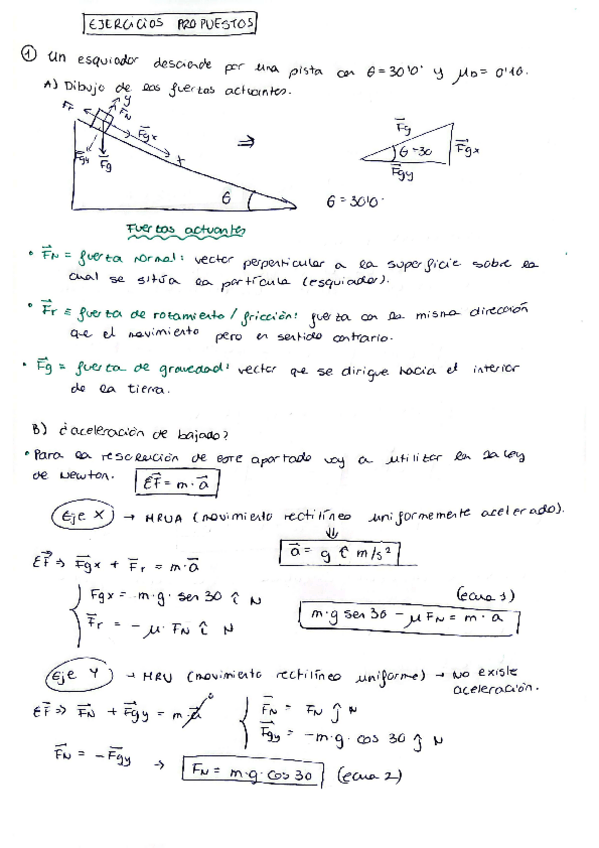 EJERCICIOS PROPUESTOS
① Un esquiador desciende por una pista con θ=30'0° y μD= 0'10.
A) Dibujo de las fuerzas actuantes.
Fr y FN
Fgx x
Fgy Fg
θ
⇒
Fg
θ=30 Fgx
Fgy
θ=30'0°
Fuerzas actuantes
• FN = fuerza normal: vector perpenticular a la superficie sobre la
cual se sitúa la partícula (esquiador).
• Fr = fuerza de rozamiento / fricción: fuerza con la misma dirección
que el movimiento pero en sentido contrario.
• Fg = fuerza de gravedad: vector que se dirigue hacia el interior
de la tierra.
B) ¿aceleración de bajado?
• Para la resolución de este apartado voy a utilizar la 2ª ley
de Newton. ΣF = m·a
Eje X → MRUA (movimiento rectilíneo uniformemente acelerado).
⇓
a = g î m/s²
ΣF ⇒ Fgx + Fr = m·a
Fgx = m·g· sen 30 î N
Fr = - μ· FN î N
(ecua 1)
m·g sen 30 - μ FN = m·a
Eje Y → MRU (movimiento rectilíneo uniforme) → No existe
aceleración.
ΣF ⇒ FN + Fgy = m a 0
FN = FN ĵ N
Fgy = -m·g· cos 30 ĵ N
FN = -Fgy → FN = m·g·cos 30 (ecua 2)